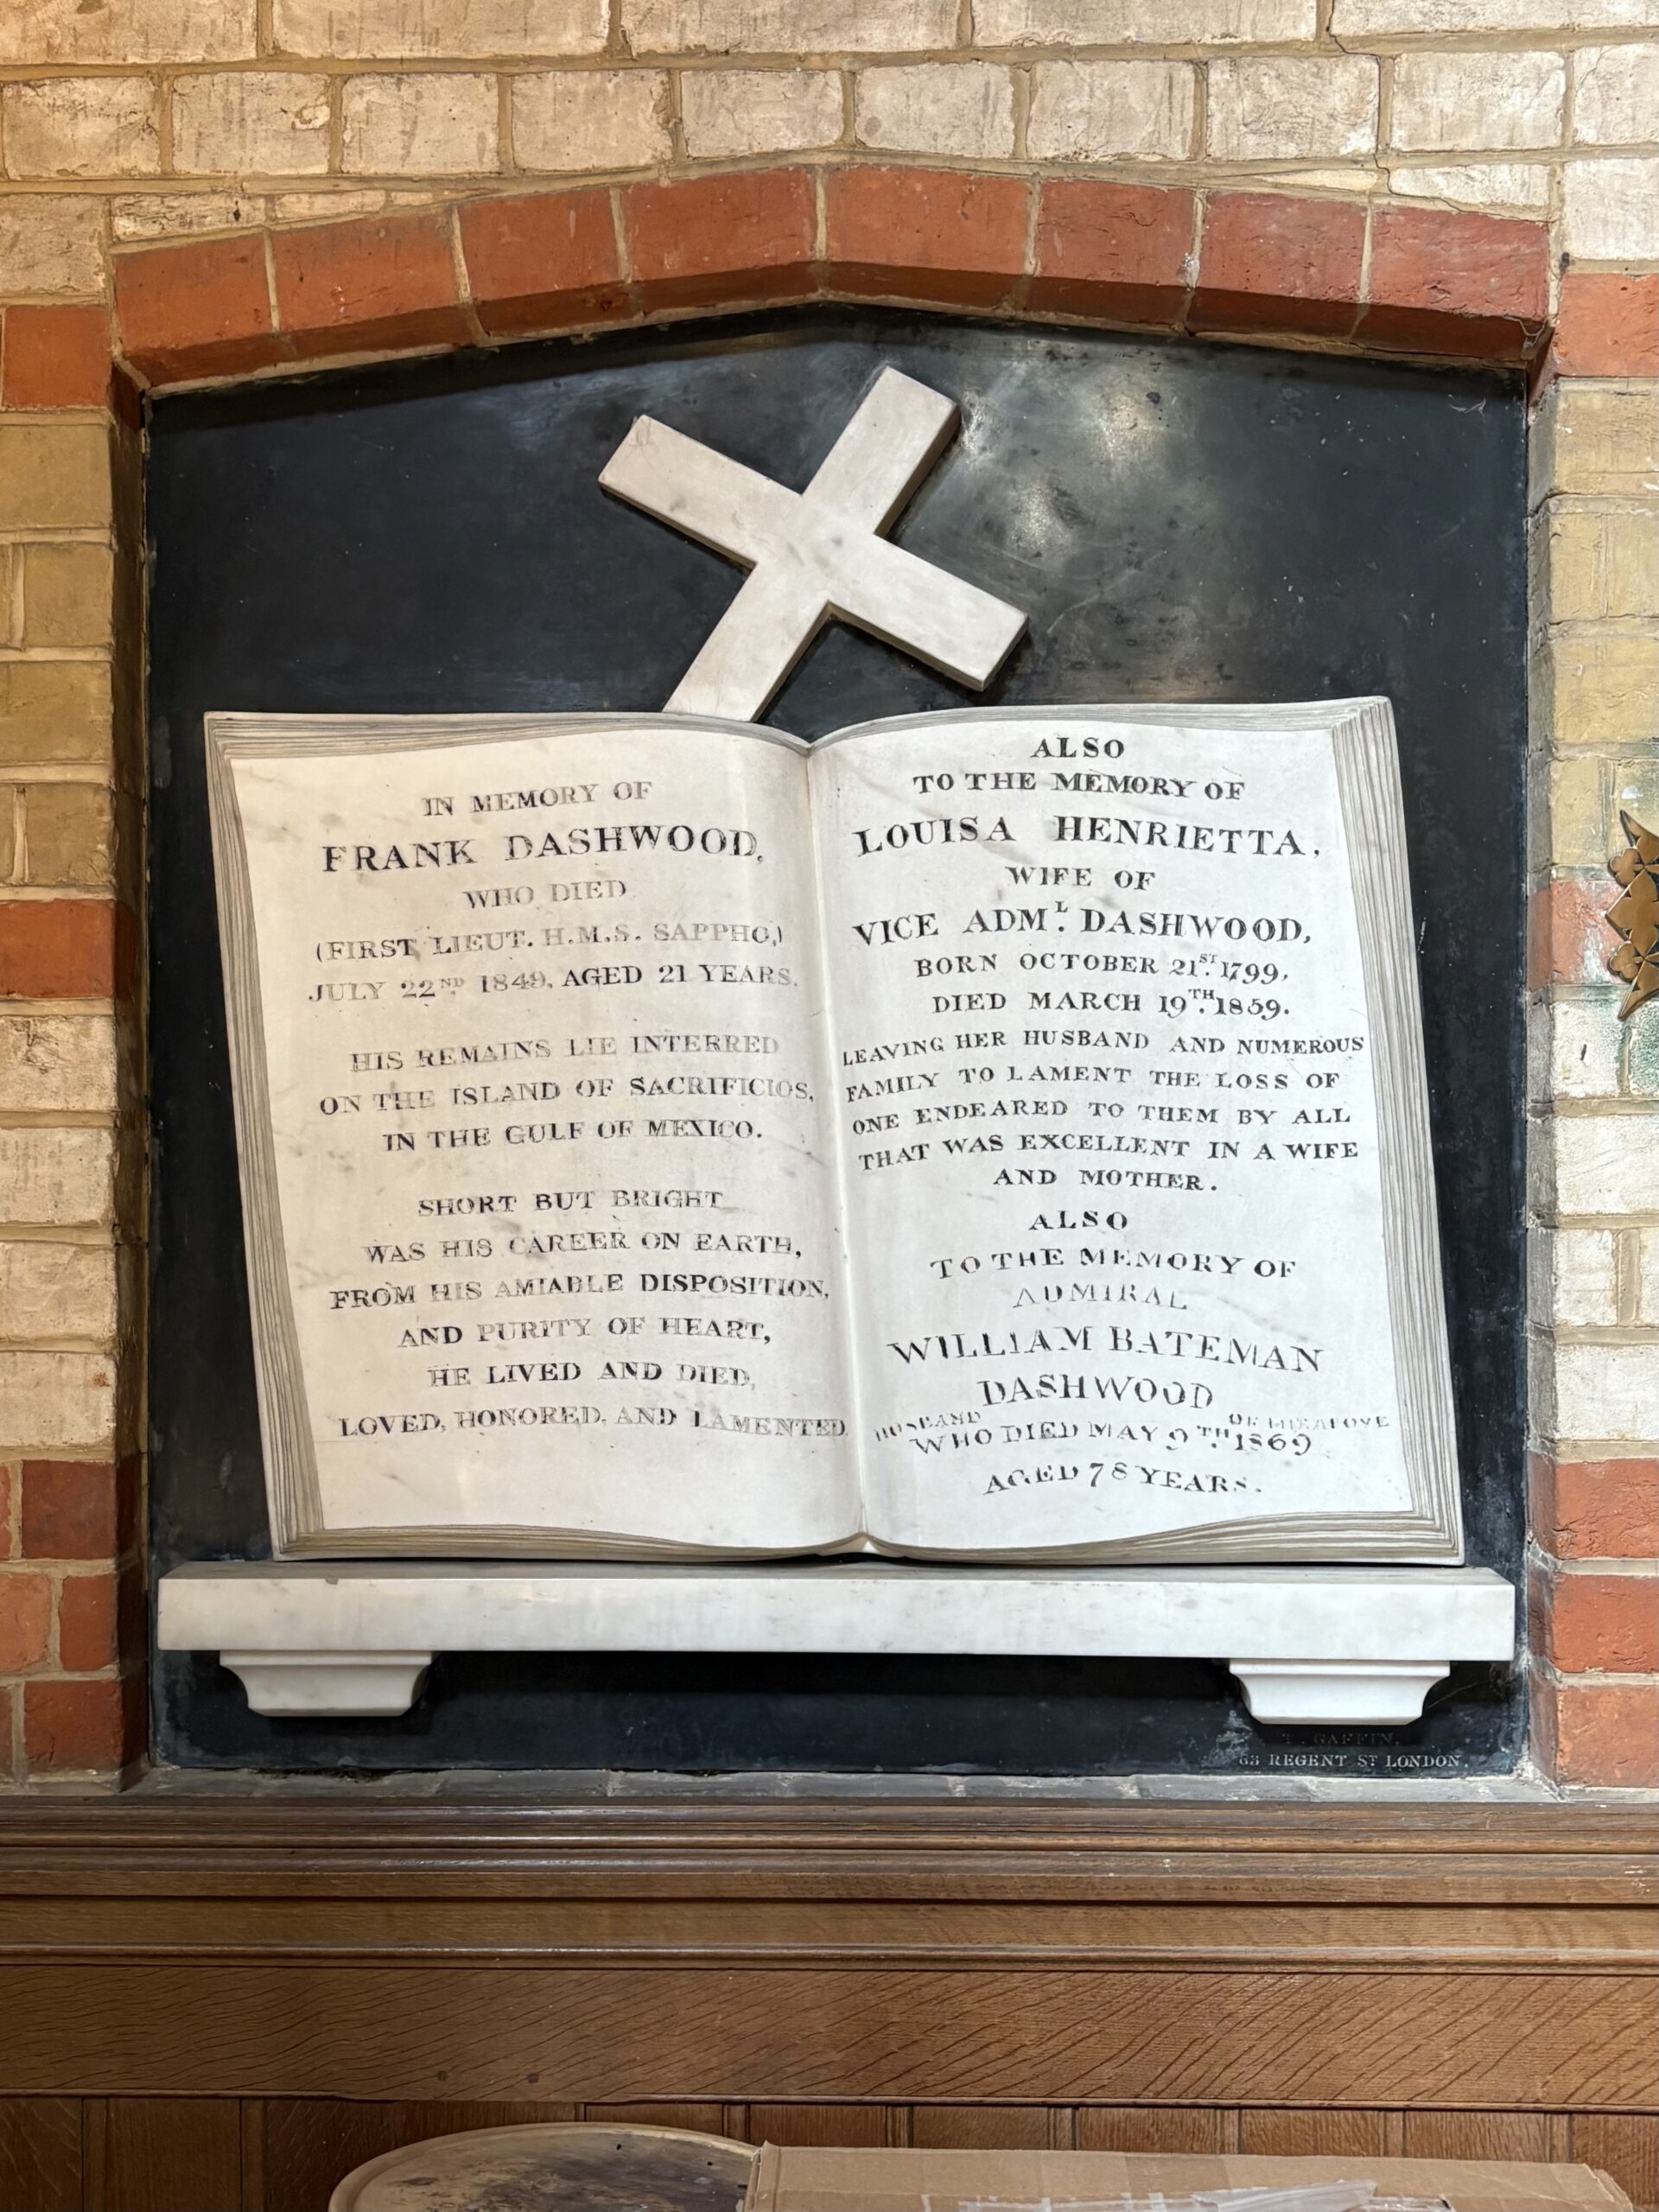 IN MEMORY OF
FRANK DASHWOOD,
WHO DIED
(FIRST LIEUT. H.M.S. SAPPHO,)
JULY 22ND 1849, AGED 21 YEARS.
HIS REMAINS LIE INTERRED
ON THE ISLAND OF SACRIFICIOS,
IN THE GULF OF MEXICO.
SHORT BUT BRIGHT
WAS HIS CAREER ON EARTH,
FROM HIS AMIABLE DISPOSITION,
AND PURITY OF HEART,
HE LIVED AND DIED,
LOVED, HONORED, AND LAMENTED.
ALSO
TO THE MEMORY OF
LOUISA HENRIETTA,
WIFE OF
VICE ADML. DASHWOOD,
BORN OCTOBER 21ST. 1799,
DIED MARCH 19TH. 1859.
LEAVING HER HUSBAND AND NUMEROUS
FAMILY TO LAMENT THE LOSS OF
ONE ENDEARED TO THEM BY ALL
THAT WAS EXCELLENT IN A WIFE
AND MOTHER.
ALSO
TO THE MEMORY OF
ADMIRAL
WILLIAM BATEMAN
DASHWOOD
HUSBAND OF THE ABOVE
WHO DIED MAY 9TH. 1869
AGED 78 YEARS.
T. GAFFIN,
63 REGENT ST LONDON.